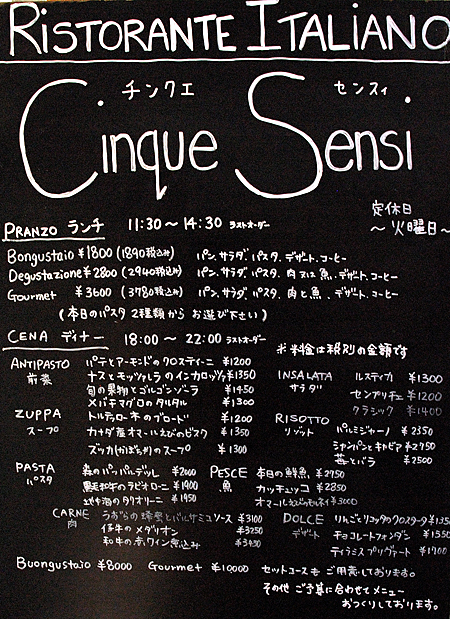 RISTORANTE ITALIANO
チンクエ センスィ
Cinque Sensi
定休日
～火曜日～
PRANZO ランチ 11:30～14:30 ラストオーダー
Bongustaio ¥1800 (1890税込み) パン、サラダ、パスタ、デザート、コーヒー
Degustazione ¥2800 (2940税込み) パン、サラダ、パスタ、肉又は魚、デザート、コーヒー
Gourmet ¥3600 (3780税込み) パン、サラダ、パスタ、肉と魚、デザート、コーヒー
(本日のパスタ 2種類から お選び下さい)
CENA ディナー 18:00～22:00 ラストオーダー
※料金は税別の金額です
ANTIPASTO 前菜
パテとアーモンドのクロスティーニ ¥1200
ナスとモッツァレラのインカロッツァ ¥1350
旬の果物とゴルゴンゾーラ ¥1450
メバチマグロのタルタル ¥1300
ZUPPA スープ
トルテッローネのブロード ¥1200
カナダ産オマールえびのビスク ¥1350
ズッカ(かぼちゃ)のスープ ¥1300
INSALATA サラダ
ルスティカ ¥1300
センプリチェ ¥1200
クラシック ¥1400
RISOTTO リゾット
パルミジャーノ ¥2350
シャンパンとキャビア ¥2750
苺とバラ ¥2500
PASTA パスタ
森のパッパルデッレ ¥2000
黒毛和牛のラビオローニ ¥1900
のタリオリーニ ¥1950
PESCE 魚
本日の鮮魚 ¥2750
カッチュッコ ¥2850
オマールえびの ¥3000
CARNE 肉
うずらの とバルサミコソース ¥3100
仔牛のメダリオン ¥3250
和牛の赤ワイン煮込み ¥3450
DOLCE デザート
りんごとリコッタのクロスタータ ¥1350
チョコレートフォンダン ¥1550
ティラミスプリヴァート ¥1700
Buongustaio ¥8000 Gourmet ¥10000 セットコースもご用意しております。
その他 ご予算に合わせてメニュー
おつくりしております。